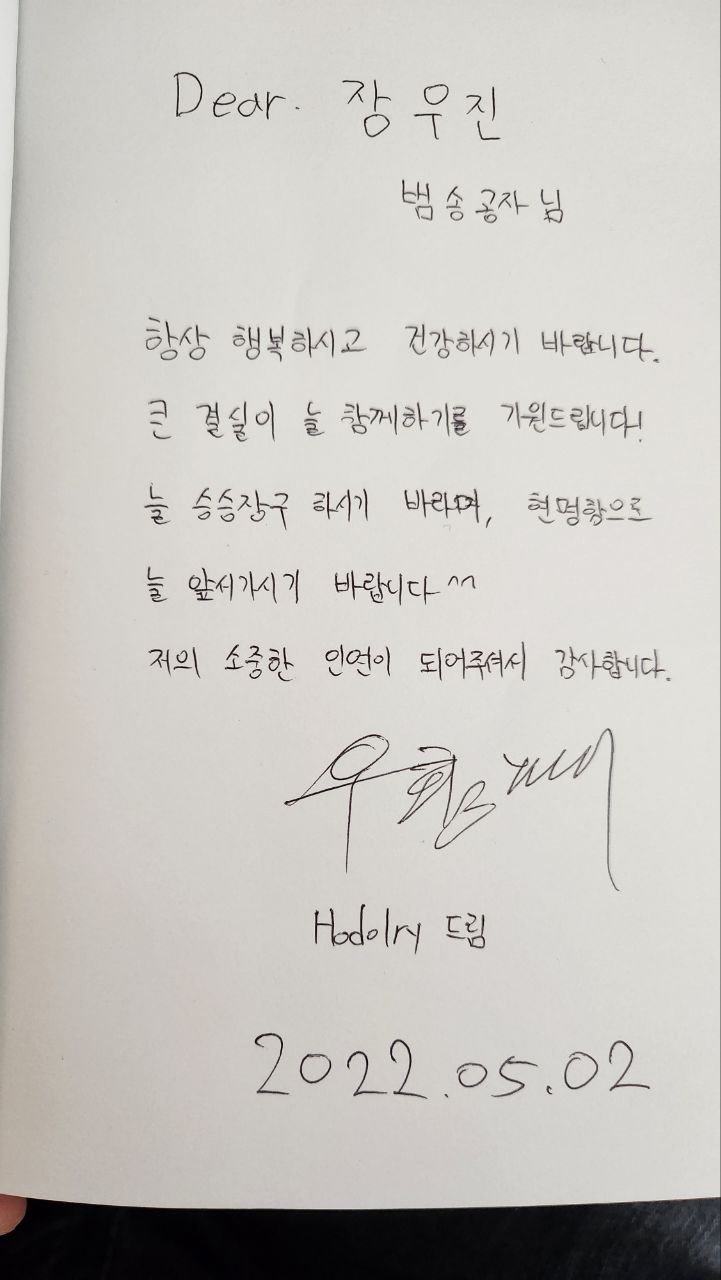 Dear. 장우진
범송공자님
항상 행복하시고 건강하시기 바랍니다.
큰 결실이 늘 함께하기를 기원드립니다!
늘 승승장구 하시기 바라며, 현명함으로
늘 앞서가시기 바랍니다^^
저의 소중한 인연이 되어주셔서 감사합니다.
Hodolry 드림
2022.05.02